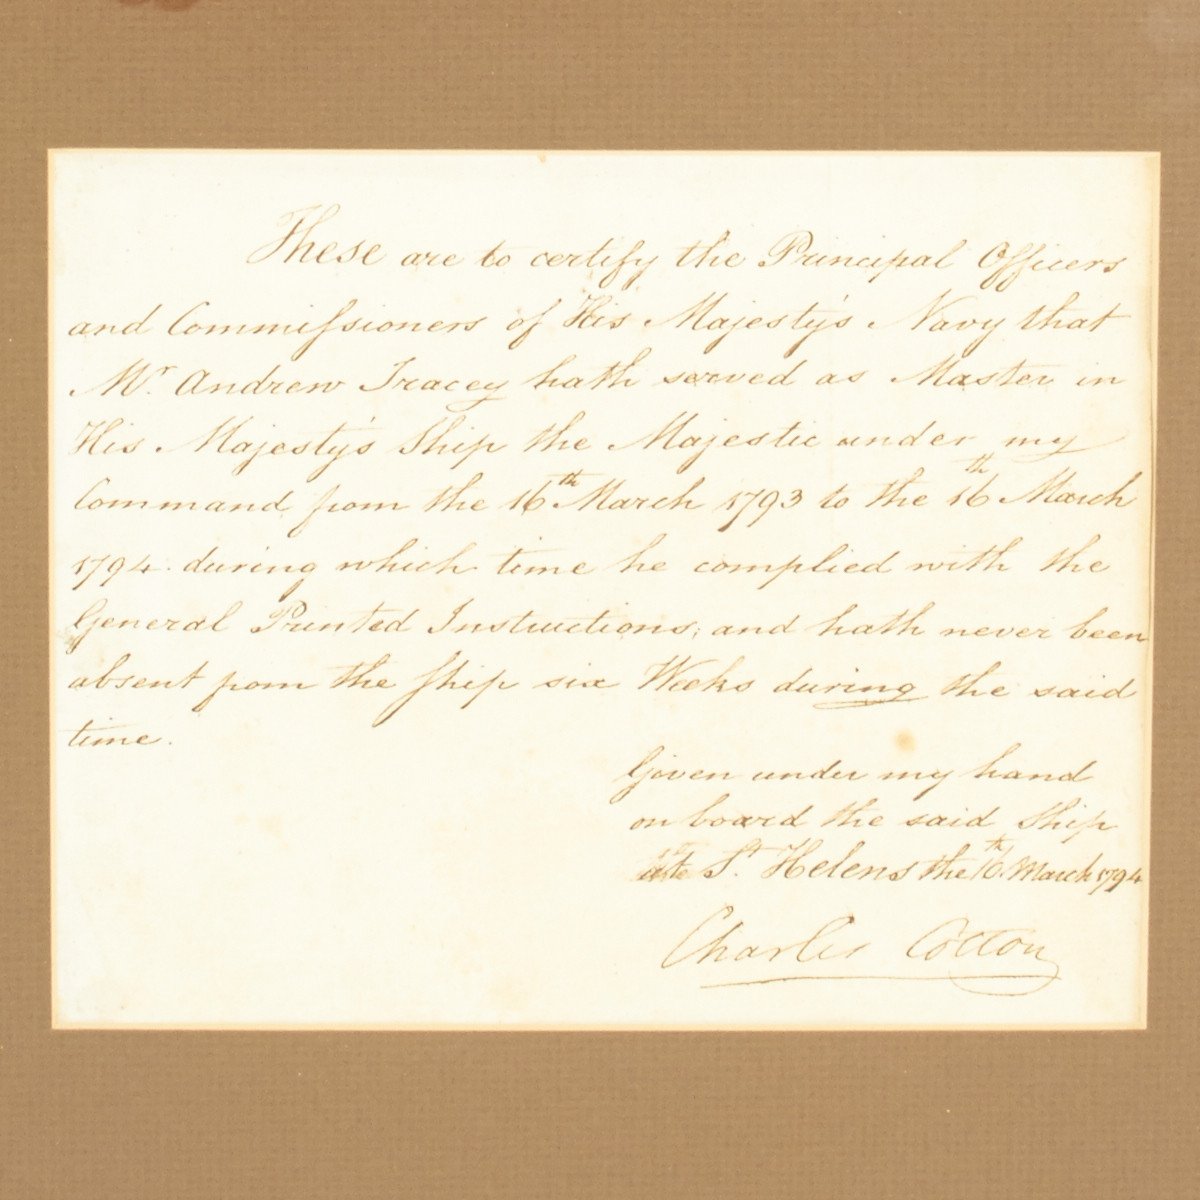 These are to certify the Principal Officers
and Commiſsioners of His Majesty's Navy that
Mr. Andrew Tracey hath served as Master in
His Majesty's Ship the Majestic under my
Command from the 16th March 1793 to the 16th March
1794. during which time he complied with the
General Printed Instructions; and hath never been
absent from the ſhip six Weeks during the said
time.
Given under my hand
on board the said Ship
St. Helens the 16th March 1794
Charles Cotton